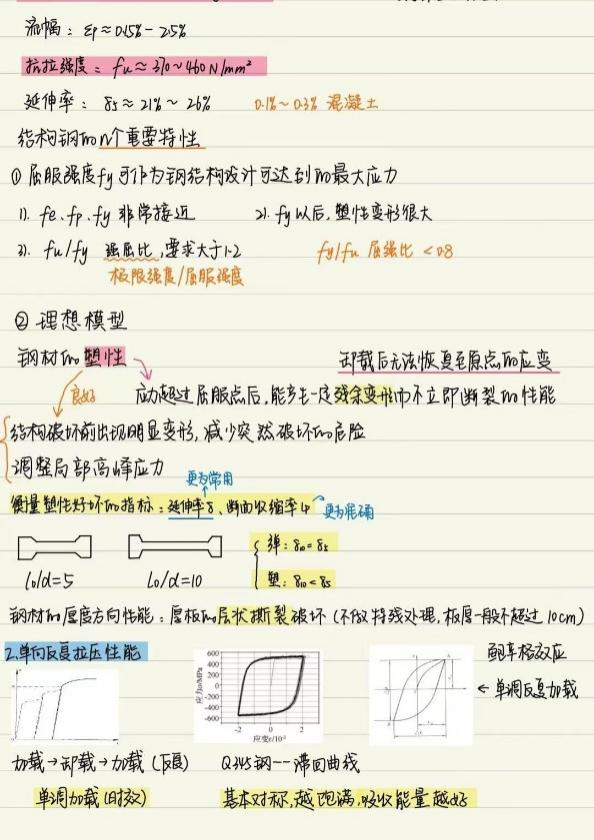 流幅：εp≈0.15%-2.5%
抗拉强度：fu≈370~460N/mm²
延伸率：δ5≈21%~26% 0.1%~0.3% 混凝土
结构钢的n个重要特性
① 屈服强度fy可作为钢结构设计可达到的最大应力
1). fe、fp、fy 非常接近 2). fy以后，塑性变形很大
3). fu/fy 强屈比，要求大于1.2 fy/fu 屈强比 <0.8
极限强度/屈服强度
② 理想模型
钢材的塑性 卸载后无法恢复至原点的应变
良好 应力超过屈服点后，能产生一定残余变形而不立即断裂的性能
结构破坏前出现明显变形，减少突然破坏的危险
调整局部高峰应力
更为常用
衡量塑性好坏的指标：延伸率δ、断面收缩率ψ 更为准确
弹：δ10=δ5
l0/d=5 l0/d=10 塑：δ10<δ5
钢材的厚度方向性能：厚板的层状撕裂破坏（不做特殊处理，板厚一般不超过10cm）
2.单向反复拉压性能
应力σ/MPa
600
400
200
0
-200
-400
-600
-2 0 2
应变ε/10⁻²
包辛格效应
←单调反复加载
加载→卸载→加载（反复） Q345钢--滞回曲线
单调加载(时效) 基本对称，越饱满，吸收能量越好